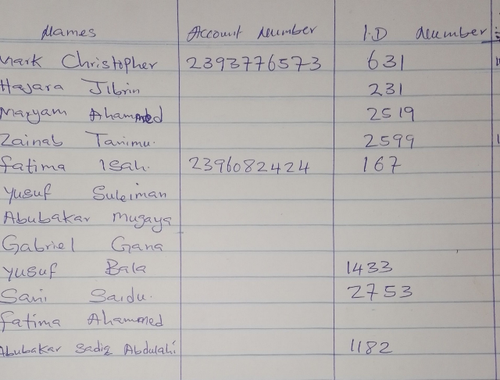 Names Account Number I.D Number
Mark Christopher 2393776573 631
Hajara Jibrin 231
Maryam Ahammed 2519
Zainab Tanimu. 2599
Fatima Isah. 2396082424 167
Yusuf Suleiman
Abubakar Mugaya
Gabriel Gana
Yusuf Bala 1433
Sani Saidu. 2753
Fatima Ahammed
Abubakar Sadiq Abdulahi 1182